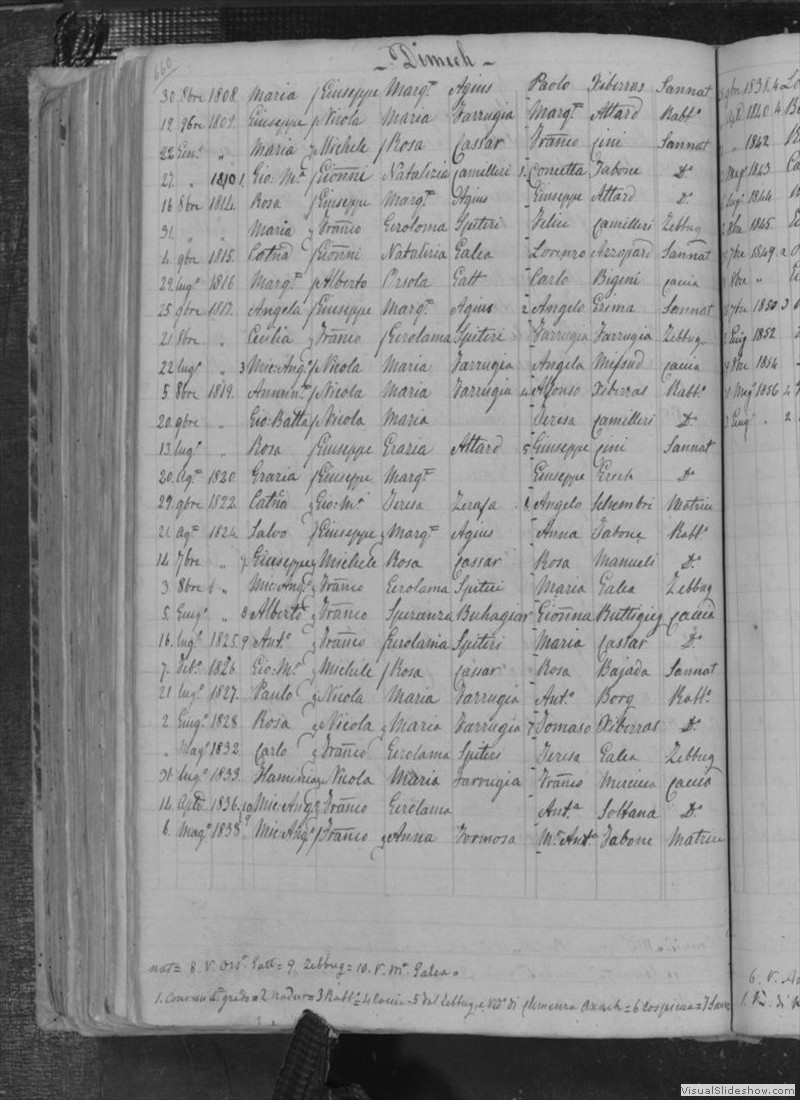 660
Dimech
30. 8bre 1808. Maria Giuseppe Marg.ta Agius Paolo Xiberras Sannat
12. 9bre 1809. Giuseppe Nicola Maria Farrugia Marg.ta Attard Rabb.o
22 Gen.o " Maria Michele Rosa Cassar Franco Cini Sannat
27. " 1810 1. Gio: M.a Gionni Natalizia Camilleri 1. Concetta Tabone D.o
16 8bre 1814. Rosa Giuseppe Marg.ta Agius Giuseppe Attard D.o
31. " " Maria Franco Geroloma Spiteri Felice Camilleri Zebbug
4. 9bre 1815. Catna Gionni Natalizia Galea Lorenzo Azzopard Sannat
29 lug.o 1816 Marg.ta Alberto Orsola Gatt Carlo Bigeni Caccia
25 9bre 1817. Angela Giuseppe Marg.ta Agius 2 Angelo Grima Sannat
21 8bre " Cecilia Franco Gerolama Spiteri Farrugia Farrugia Zebbug
22 lug.o " 3 Mic: Ang.o Nicola Maria Farrugia Angela Mifsud Caccia
5. 8bre 1819. Annun.ta Nicola Maria Farrugia 4 Alfonso Xiberras Rabb.o
20. 9bre " Gio: Batta Nicola Maria Teresa Camilleri D.o
13. lug.o " Rosa Giuseppe Grazia Attard 5 Giuseppe Cini Sannat
20. Ag.o 1820. Grazia Giuseppe Marg.ta Giuseppe Grech D.o
29. 9bre 1822. Catna Gio: M.a Teresa Zerafa 6. Angelo Schembri Matrice
21 Ag.o 1824. Salvo Giuseppe Marg.ta Agius Anna Tabone Rabb.o
14. 7bre " 7. Giuseppe Michele Rosa Cassar Rosa Manueli D.o
3. 8bre " Mic: Ang.o Franco Gerolama Spiteri Maria Galea Zebbug
5. Giug.o " 8 Alberto Franco Speranza Buhagiar Gionna Buttigieg Caccia
16. lug.o 1825. 9 Ant.o Franco Gerolama Spiteri Maria Castar D.o
7. Feb.o 1826 Gio: M.a Michele Rosa Cassar Rosa Bajada Sannat
21 lug.o 1827. Paulo Nicola Maria Farrugia Ant.a Borg Rabb.o
2 Giug.o 1828 Rosa Nicola Maria Farrugia 7 Tomaso Xiberras D.o
" Mag.o 1832. Carlo Franco Gerolama Spiteri Teresa Galea Zebbug
31. lug.o 1833. Flaminia Nicola Maria Farrugia Franco Mercieca Caccia
14. Aple 1836. 10 Mic: Ang.o Franco Gerolama Ant.a Soltana D.o
6. Mag.o 1838. 9 Mic: Ang.o Franco Anna Formosa M.a Ant.a Tabone Matrice
not = 8. V. Ors.a Gatt = 9. Zebbug = 10. V. M.a Galea =
1. Consan 4.o grado = 2 Nadur = 3 Rabb.o = 4 Caccia = 5 del Zebbug, e Ved.o di Clemenza = 6 Cospicua = 7
9bre 1838. 4
Aple 1840 4
" 1842
Mag.o 1843
1844
8bre 1845.
7bre 1849. 2
8bre "
7bre 1850 3
Giug 1852
8bre 1854
Mag.o 1856 4
Giug.o " 2
6. V.
1. V.
VisualSlideshow.com